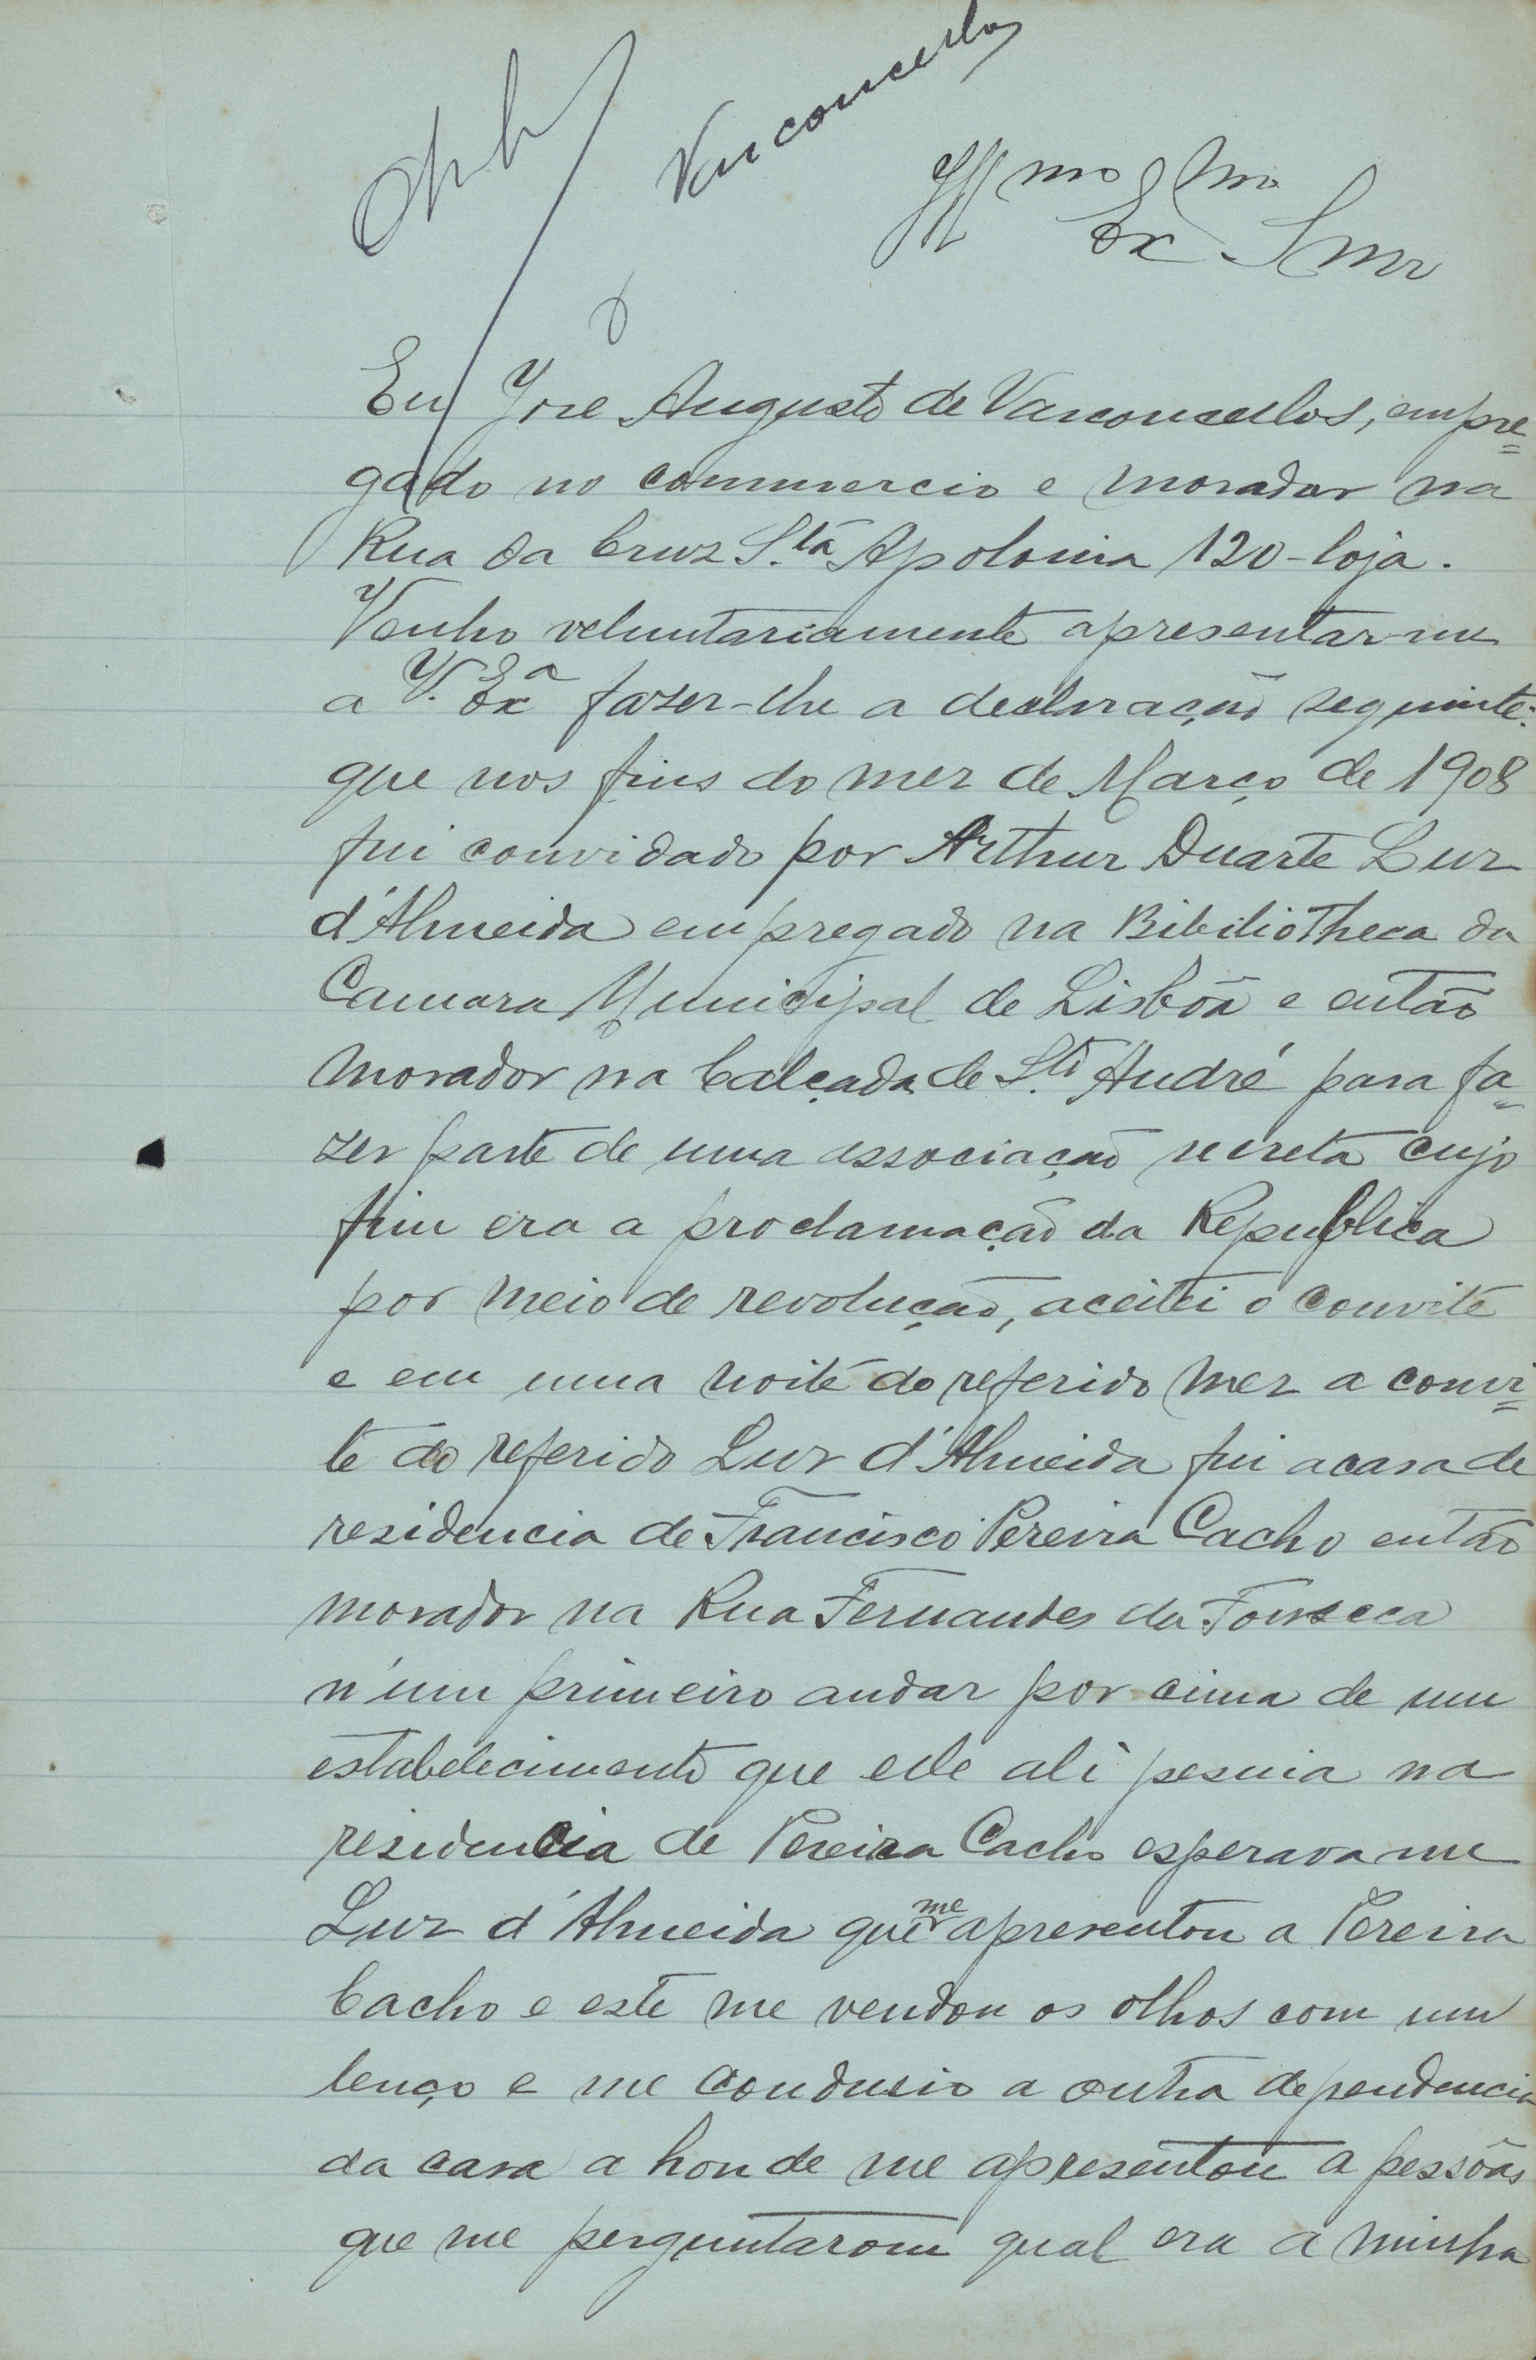 Vasconcellos
Illmo Exmo Snr
Eu Jose Augusto de Vasconcellos, empre=
gado no commercio e morador na
Rua da Cruz S.ta Apolonia 120-loja.
Venho veluntariamente apresentar-me
a V. Exa fazer-lhe a declaração seguinte:
que nos fins do mez de Março de 1908
fui convidado por Arthur Duarte Luz
d'Almeida empregado na Bibiliotheca da
Camara Municipal de Lisbôa e então
morador na Calçada de S.to André para fa=
zer parte de uma associação secreta cujo
fim era a proclamação da Republica
por meio de revolução, aceitei o convite
e em uma noite do referido mez a convi=
te do referido Luz d'Almeida fui a casa de
residencia de Francisco Pereira Cacho então
morador na Rua Fernandes da Fonseca
n'um primeiro andar por cima de um
estabelecimento que elle ali pesuia na
residencia de Pereira Cacho esperava me
Luz d'Almeida que me apresentou a Pereira
Cacho e este me vendou os olhos com um
lenço e me condusio a outra dependencia
da casa a honde me apresentou a pessôas
que me perguntarom qual era a minha